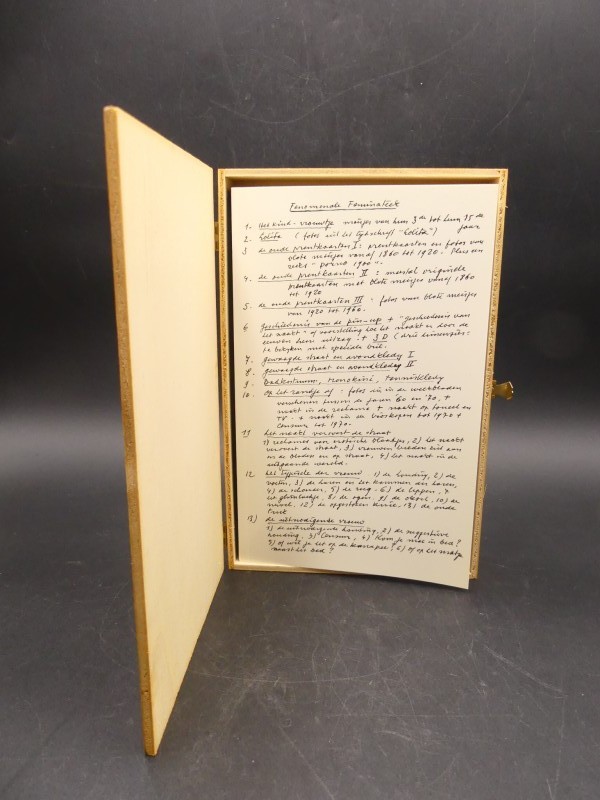 Fenomenale Feminateek
1- Het kind-vrouwtje meisjes van hun 3de tot hun 15de jaar
2- Lolita (fotos uit het tijdschrift "Lolita")
3 de oude prentkaarten I: prentkaarten en fotos van
blote meisjes vanaf 1860 tot 1920. Plus een
reeks "porno 1900".
4. de oude prentkaarten II: meestal originele
prentkaarten met blote meisjes vanaf 1860
tot 1920
5. de oude prentkaarten III - fotos van blote meisjes
van 1920 tot 1960.
6 Geschiedenis van de pin-up + "geschiedenis van
het naakt" of voorstelling hoe het naakt er door de
eeuwen heen uitzag - + 3D (drie dimensies:
te bekijken met speciale bril.
7- gewaagde straat en avondkledij I
8- gewaagde straat en avondkledij II
9- badkostuums, monokini, tenniskledij
10- op het randje af - fotos die in de weekbladen
verschenen tussen de jaren 60 en 70, +
naakt in de reclame + naakt op toneel en
TV - + naakt in de bioskopen tot 1970 +
Censuur tot 1970.
11 het naakt verovert de straat
1) reclames voor erotische blaadjes, 2) het naakt
verovert de straat, 3) vrouwen bieden zich aan
in de bladen en op straat, 4) het naakt in de
uitgaande wereld.
12 het typische der vrouw 1) de houding, 2) de
voeten, 3) de haren en het kammen der haren,
4) de schouder, 5) de rug - 6) de lippen, 7
het glimlachje, 8) de ogen, 9) de oksel, 10) de
navel, 12) de opgestoken knie, 13) de oude
truk
13) de uitnodigende vrouw
1) de uitnodigende houding, 2) de suggestieve
houding, 3) Censuur, 4) Kom je mee in bed?
5) of wil je het op de kanapee, 6) of op het matje
naast het bed?